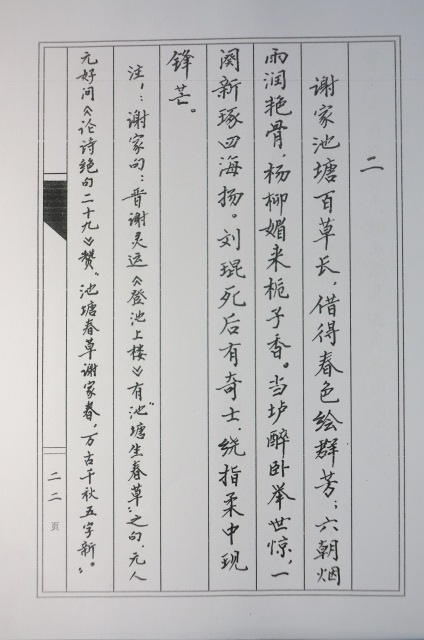 二
谢家池塘百草长，借得春色绘群芳；六朝烟
雨润艳骨，杨柳媚来栀子香。当垆醉卧举世惊，一
阕新琢四海扬。刘琨死后有奇士，绕指柔中现
锋芒。
注1：谢家句：晋谢灵运《登池上楼》有“池塘生春草”之句，元人
元好问《论诗绝句二十九》赞“池塘春草谢家春，万古千秋五字新。”
二二
页